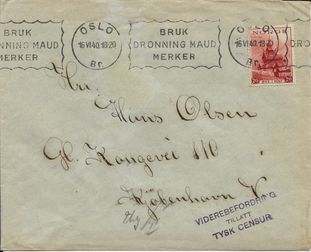 BRUK
DRONNING MAUD
MERKER
OSLO
16 VI 40. 18-20
Br.
BRUK
DRONNING MAUD
MERKER
OSLO
16 VI 40. 18-20
Br.
DRONNING
NORGE
20
Hr.
Hans Olsen
Gl. Kongevei 111
København V.
VIDEREBEFORDRING
TILLATT
TYSK CENSUR